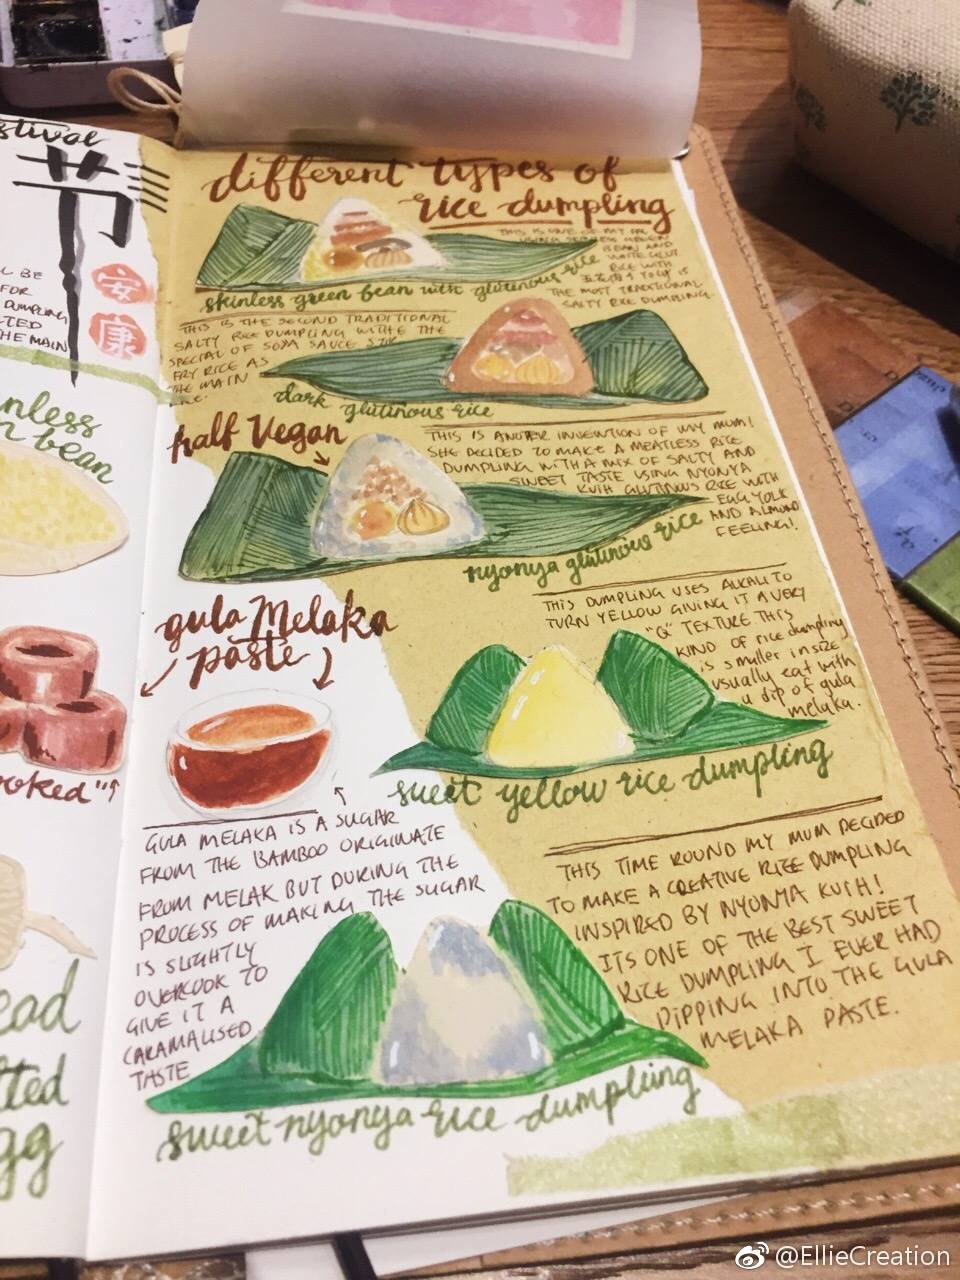 stival
节
安
康
L BE
FOR
DUMPLING
LTED
HE MAIN
nless
n bean
ooked"
ead
tted
gg
different types of
rice dumpling
THIS IS ONE OF MY
USING GREEN
BEAN AND
WHITE GLUT
RICE WITH
IS
THE MOST TRADITIONAL
SALTY RICE DUMPLING.
skinless green bean with glutinous rice
THIS IS THE SECOND TRADITIONAL
SALTY RICE DUMPLING WITHE THE
SPECIAL OF SOYA SAUCE STIR
FRY RICE AS
THE MAIN
dark glutinous rice
half Vegan
THIS IS ANOTER INVENTION OF MY MUM!
SHE DECIDED TO MAKE A MEATLESS RICE
DUMPLING WITH A MIX OF SALTY AND
SWEET TASTE USING NYONYA
KUIH GLUTINOUS RICE WITH
EGG YOLK
AND ALMOND
FEELING!
nyonya glutinous rice
gula Melaka
paste
THIS DUMPLING USES ALKALI TO
TURN YELLOW GIVING IT A VERY
"Q" TEXTURE THIS
KIND OF rice dumpling
is smaller in size
usually eat with
a dip of gula
melaka.
sweet yellow rice dumpling
GULA MELAKA IS A SUGAR
FROM THE BAMBOO ORIGINATE
FROM MELAK BUT DURING THE
PROCESS OF MAKING THE SUGAR
IS SLIGHTLY
OVERCOOK TO
GIVE IT A
CARAMALISED
TASTE
THIS TIME ROUND MY MUM DECIDED
TO MAKE A CREATIVE RICE DUMPLING
INSPIRED BY NYONYA KUIH!
ITS ONE OF THE BEST SWEET
RICE DUMPLING I EVER HAD
DIPPING INTO THE GULA
MELAKA PASTE.
sweet nyonya rice dumpling
@EllieCreation